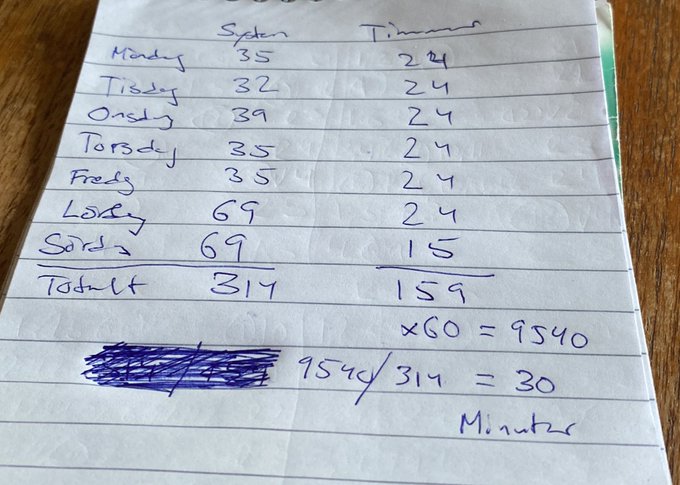 System Timmar
Måndag 35 24
Tisdag 32 24
Onsdag 39 24
Torsdag 35 24
Fredag 35 24
Lördag 69 24
Söndag 69 15
Totalt 314 159
x60 = 9540
9540/314 = 30
Minuter